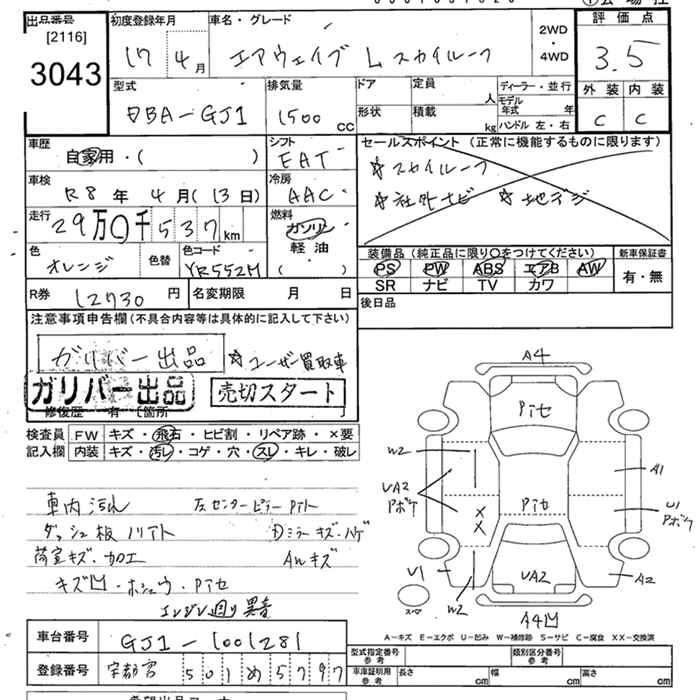 出品番号 [2116] 3043
初度登録年月 17年 4月
車名・グレード エアウェイブ L スカイルーフ
2WD・4WD
評価点 3.5
外装 C 内装 C
型式 DBA-GJ1
排気量 1500 cc
ドア 形状
定員 人 積載 kg
ディーラー・並行
モデル年式 年
ハンドル 左・右
車歴 自家用・( )
シフト FAT
セールスポイント (正常に機能するものに限ります)
☆スカイルーフ
☆社外ナビ ☆地デジ
車検 R8年 4月(13日)
冷房 AAC
走行 29万0千537km
燃料 ガソリン 軽油 ( )
色 オレンジ 色替 色コード YR552M
装備品 (純正品に限り○をつけてください) 新車保証書
PS PW ABS エアB AW 有・無
SR ナビ TV カワ
R券 12730円 名変期限 月 日
後日品
注意事項申告欄(不具合内容等は具体的に記入して下さい)
ガリバー出品 ☆ユーザー買取車
ガリバー出品 売切スタート
修復歴 有 [箇所 ]
検査員 FW キズ・飛石・ヒビ割・リペア跡・×要
記入欄 内装 キズ・汚レ・コゲ・穴・スレ・キレ・破レ
車内汚れ 左センターピラーPイト
ダッシュ板ノリアト Dミラーキズ・ハゲ
荷室キズ・加工 AWキズ
キズ凹・ホシュウ・Pイセ
エンジン廻り異音
A4
Pイセ
W2
A1
UA2 Pボケ
Pイセ
U1 Pボケ
X X
U1
UA2
A2
スマ
W2
A4凹
A-キズ E-エクボ U-凹み W-補修跡 S-サビ C-腐食 XX-交換済
車台番号 GJ1-1001281
登録番号 宇都宮 501 め 5797
型式指定番号 参考 類別区分番号 参考
車庫証明用 参考 長さ cm 幅 cm 高さ cm